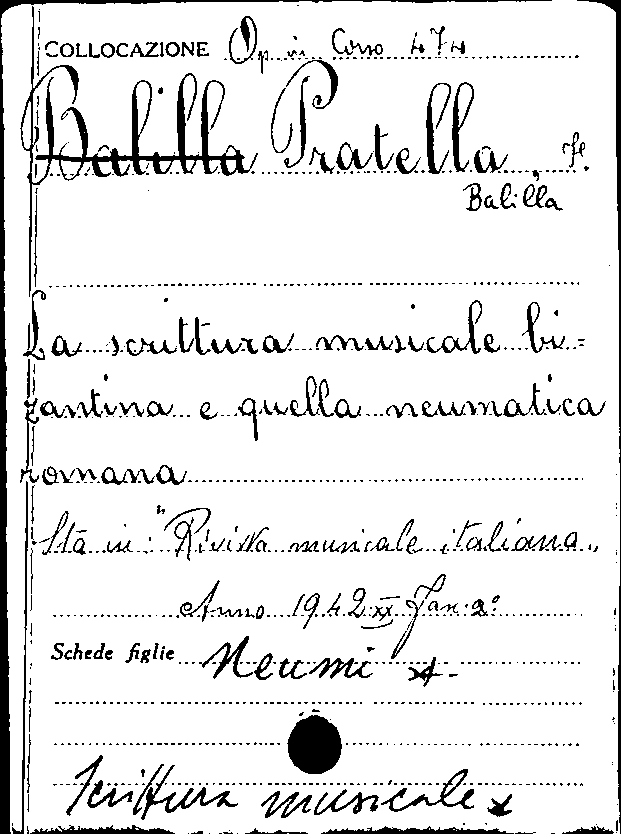 COLLOCAZIONE Op in Corso 474
Balilla Pratella, fr.
Balilla
La scrittura musicale bi=
zantina e quella neumatica
romana
Sta in: "Rivista musicale italiana"
Anno 1942 XX Fasc. 2º
Schede figlie Neumi
Scrittura musicale